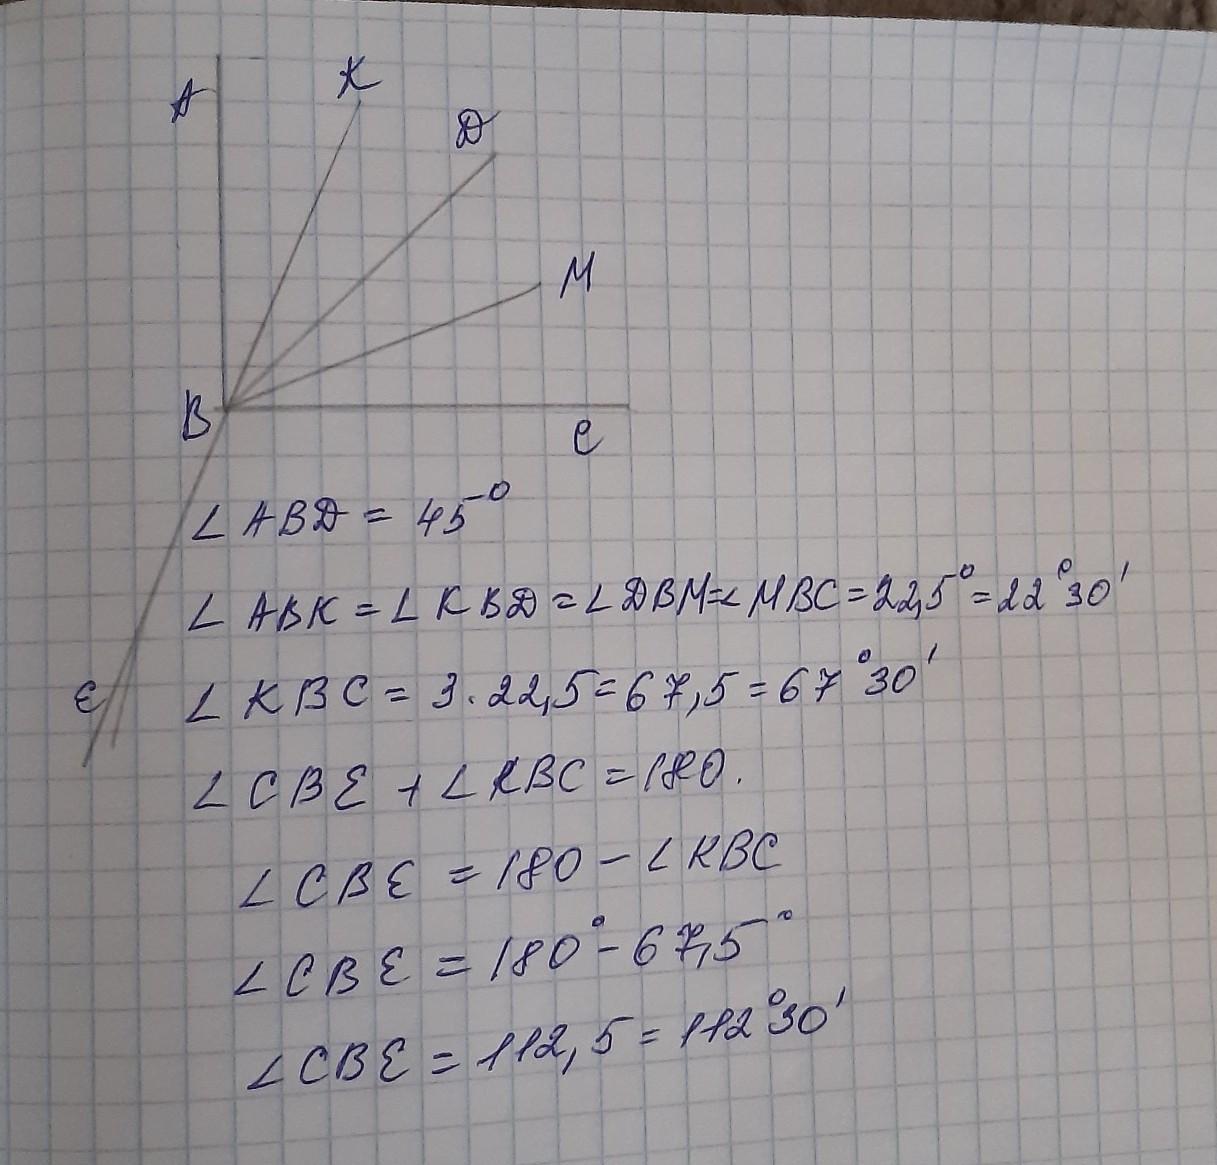 A
K
D
M
B
C
E
∠ ABD = 45°
∠ ABK = ∠ KBD = ∠ DBM = ∠ MBC = 22,5° = 22°30'
∠ KBC = 3 · 22,5 = 67,5 = 67°30'
∠ CBE + ∠ KBC = 180.
∠ CBE = 180 - ∠ KBC
∠ CBE = 180° - 67,5°
∠ CBE = 112,5 = 112°30'